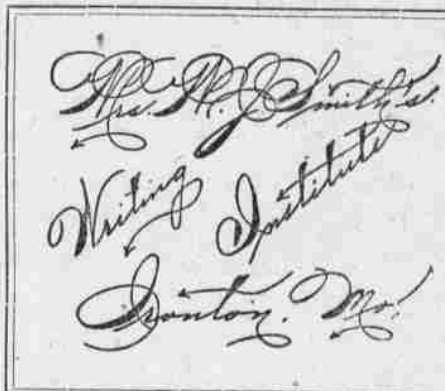 Mrs. M. J. Smith's.
Writing Institute
Ironton. Mo.